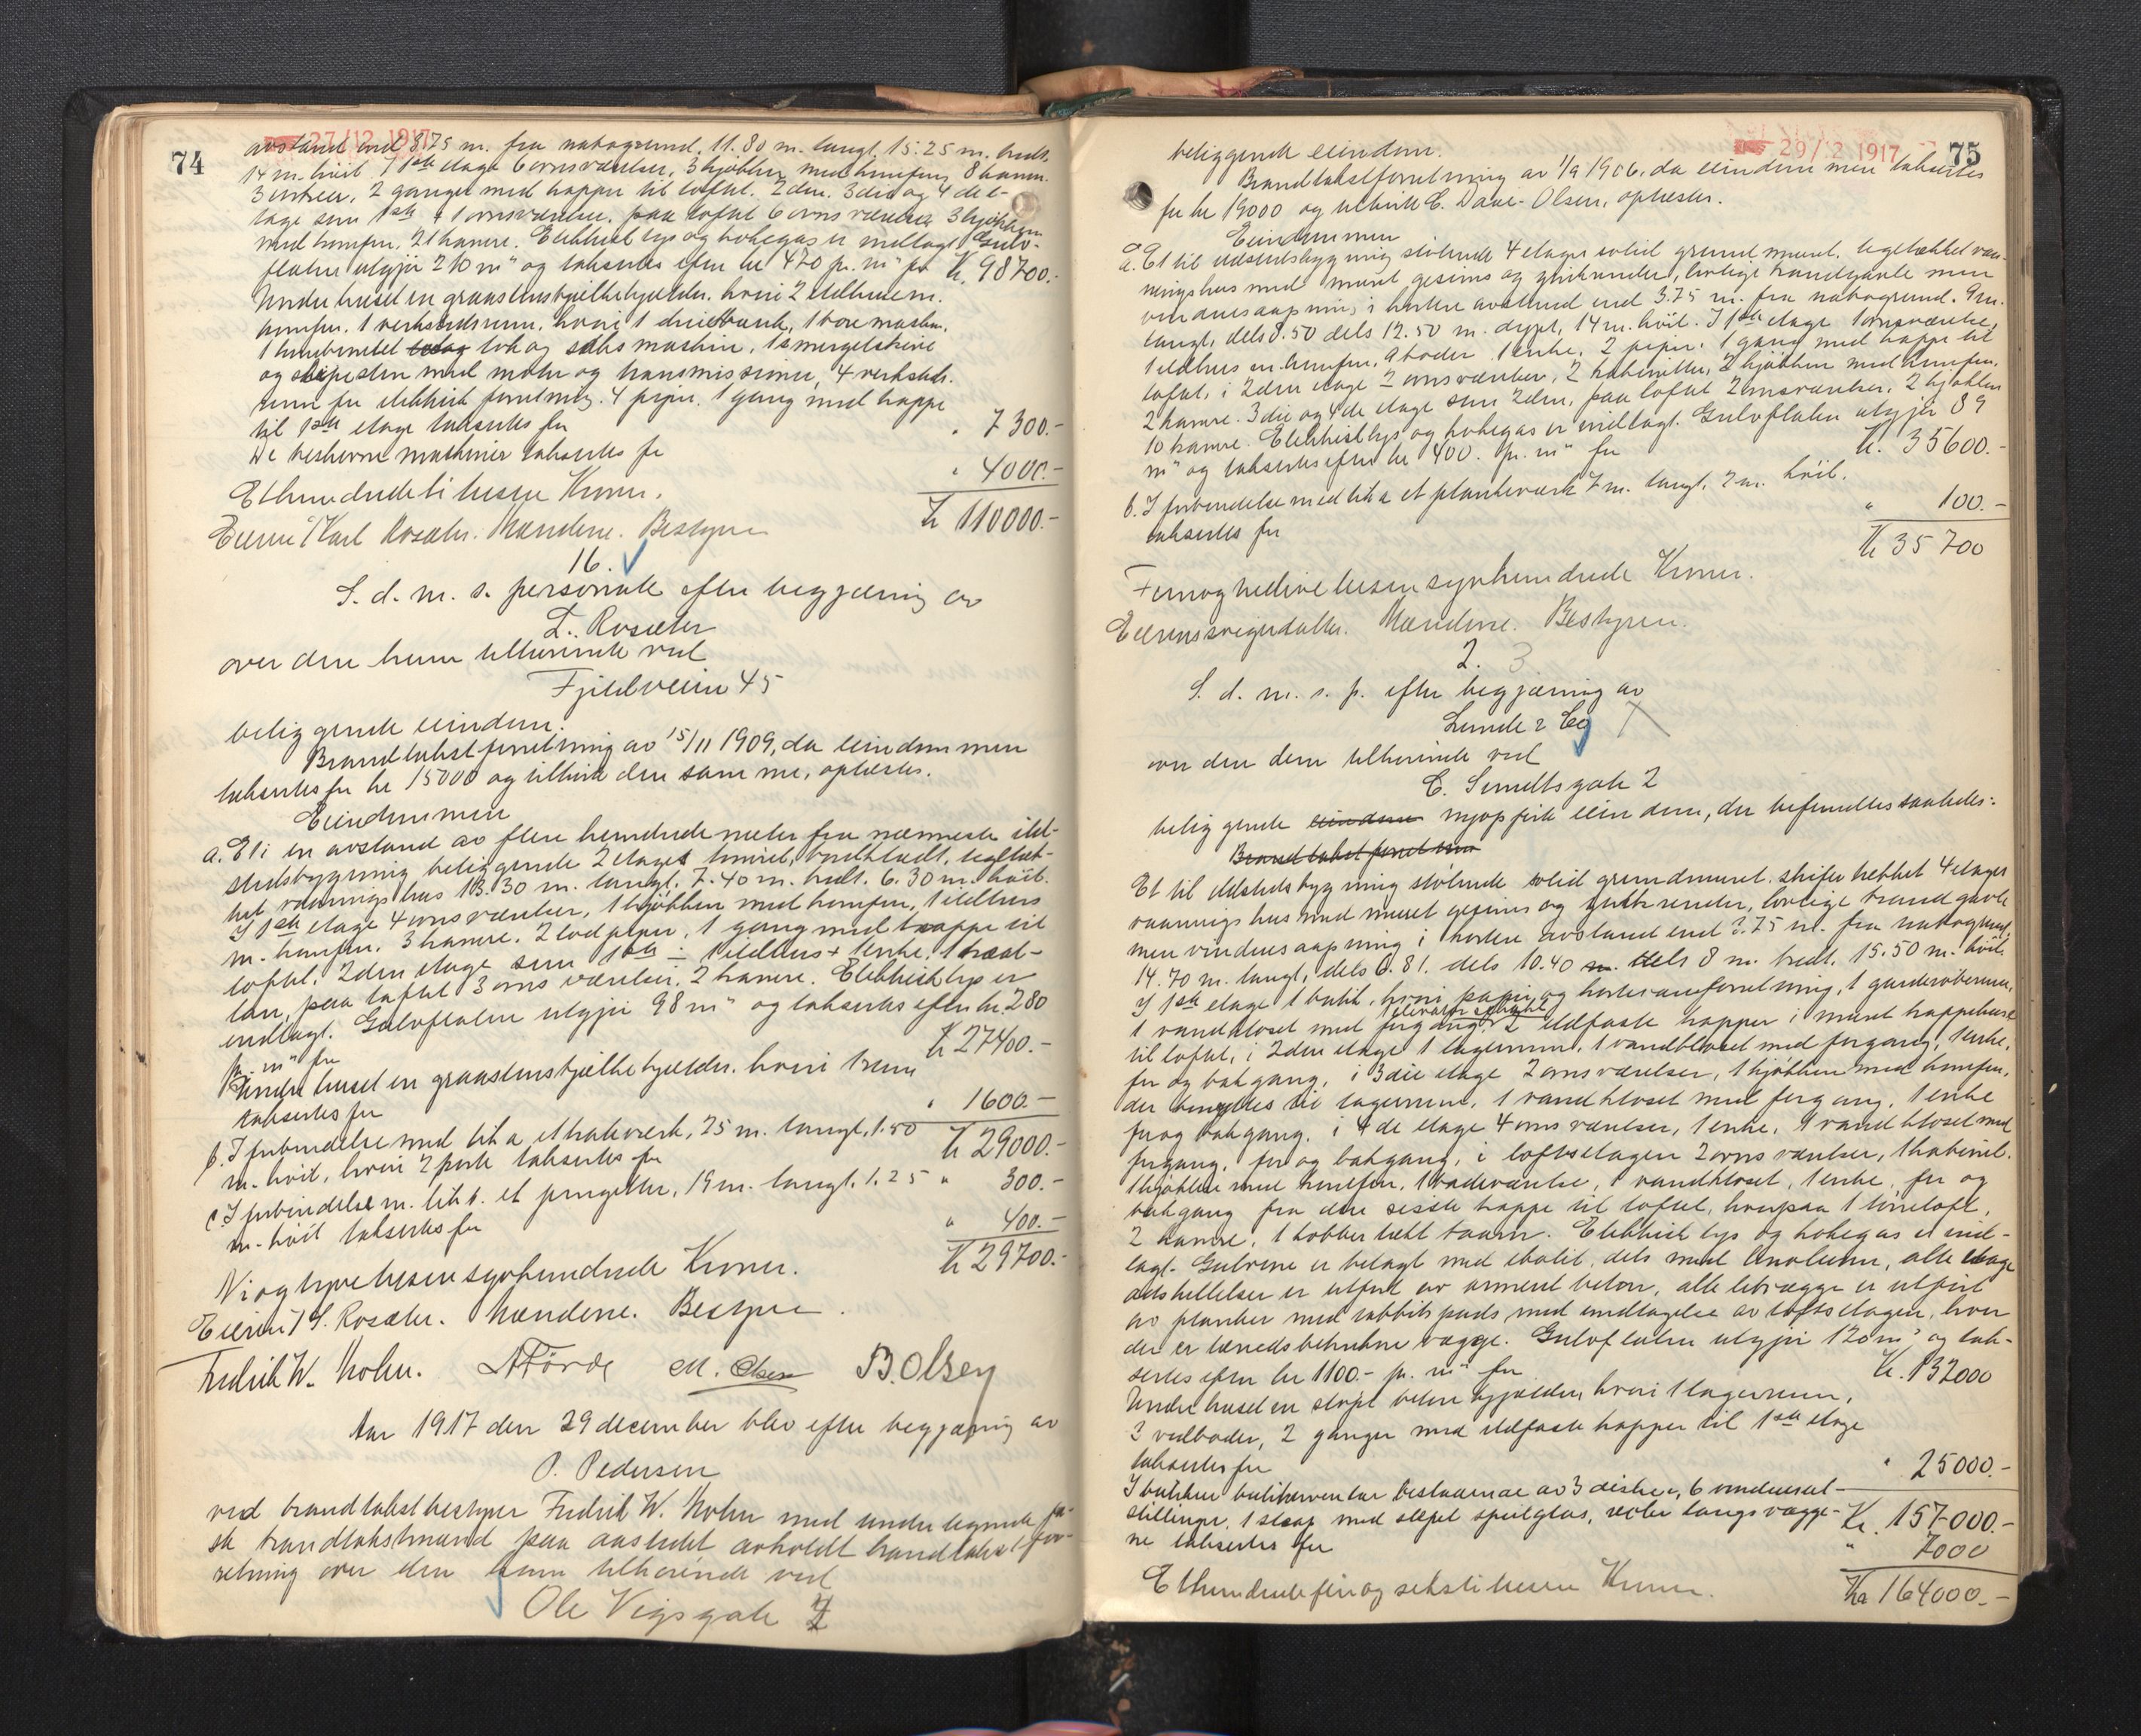 74
27/12 1917
avstand end 3.75 m. fra nabogrund, 11.80 m. langt, 15.25 m. bredt.
14 m. høit. I 1ste etage 6 ovnsværelser, 3 kjøkken med komfur, 8 kamre.
3 entreer, 2 ganger med trapper til loftet. 2den. 3die og 4de e-
tage som 1ste + 1 ovnsværelse, paa loftet 6 ovnsværelser 3 kjøkken
med komfur, 21 kamre. Elektrisk lys og kokegas er indlagt. Gulv-
flaten utgjør 210 m² og takseres efter kr 470 pr. m² for Kr. 98700.-
Under huset en graastenshvælvkjelder, hvori 2 ildhus m.
komfur, 1 verkstedsrum, hvori 1 dreiebænk, 1 boremaskin,
1 kombineret lok og saks maskine, 1 smergelskive
og slipesten med motor og transmissioner, 4 verksteds-
rum for elektrisk forretning. 4 piper. 1 gang med trappe
til 1ste etage takseres for " 7300.-
De beskrevne maskiner takseres for " 4000.-
Ethundredeti tusen Kroner. Kr 110000.-
Eieren / Karl Rosæter. Mændene. Bestyrer
16.
S. d. m. s. personale efter begjæring av
L. Rosæter
over den ham tilhørende ved
Fjeldveien 45
beliggende eiendom.
Brandtakstforretning av 15/11 1909, da eiendommen
taksertes for kr 15000 og tilhørte den samme, oplæstes.
Eiendommen
a. Et i en avstand av flere hundrede meter fra nærmeste ild-
stedsbygning beliggende 2 etages tømret, bordklædt, tegltæk-
ket vaaningshus 13.30 m. langt. 7.40 m. bredt. 6.30 m. høit.
I 1ste etage 4 ovnsværelser, 1 kjøkken med komfur, 1 ildhus
m. komfur. 3 kamre. 2 lodpiper, 1 gang med trappe til
loftet. 2den etage som 1ste ÷ 1 ildhus + 1 entre. 1 træal-
tan, paa loftet 3 ovnsværelser. 2 kamre. Elektrisk lys er
indlagt. Gulvflaten utgjør 98 m² og takseres efter kr. 280
pr. m² for Kr 27400.-
Under huset en graastenshvælvkjelder, hvori 1 rum
takseres for " 1600.-
Kr 29000.-
b. I forbindelse med lit. a, et stakværk, 25 m. langt, 1.50
m. høit, hvori 2 porte takseres for " 300.-
c. I forbindelse m. lit. b. et 19 m. langt. 1.25
m. høit takseres for " 400.-
Kr 29700.-
Niogtyvetusensyvhundrede Kroner.
Eieren / L. Rosæter. Mændene. Bestyrer.
Fredrik W. Mohn. A Førde M. Olsen B. Olsen
Aar 1917 den 29 december blev efter begjæring av
P. Pedersen
ved brandtakstbestyrer Fredrik W. Mohn med undertegnede fa-
ste brandtakstmænd paa aastedet avholdt brandtakstfor-
retning over den ham tilhørende ved
Ole Vigsgate
75
29/12 1917
beliggende eiendom.
Brandtakstforretning av 1/9 1906, da eiendommen taksertes
for kr 19000 og tilhørte C. Dave-Olsen, oplæstes.
Eiendommen
a. Et til ildstedsbygning stødende 4 etages solid grundmuret, tegltækket vaa-
ningshus med muret gesims og zinkrender, lovlige brandgavle men
vinduesaapning i kortere avstand end 3.75 m. fra nabogrund. 9 m.
langt, dels 8.50 dels 12.50 m. dypt, 14 m. høit. I 1ste etage 1 ovnsværelse,
1 ildhus m. komfur, 9 boder 1 entre. 2 piper. 1 gang med trappe til
loftet, i 2den etage 2 ovnsværelser, 2 kabinetter, 2 kjøkken med komfur.
2 kamre. 3die og 4de etage som 2den, paa loftet 2 ovnsværelser. 2 kjøkken
10 kamre. Elektrisk lys og kokegas er indlagt. Gulvflaten utgjør 89
m² og takseres efter kr 400. pr. m² for Kr. 35600.-
b. I forbindelse med lit. a et plankeværk 7 m. langt. 2 m. høit.
takseres for " 100.-
Kr 35700
Femogtredivetusensyvhundrede Kroner.
Eierens svigerdatter. Mændene. Bestyrer.
2. 3
S. d. m. s. p. efter begjæring av
Lunde & Co X
over den dem tilhørende ved
C. Sundtsgate 2
beliggende eiendom nyopført eiendom, der befandtes saaledes:
Brandtakstforretning
Et til ildstedsbygning stødende solid grundmuret. skifertækket 4 etages
vaaningshus med muret gesims og zinkrender, lovlige brandgavle
men vinduesaapning i kortere avstand end 3.75 m. fra nabogrund,
14.70 m. langt, dels 6.81. dels 10.40 m. dels 8 m. bredt. 15.50 m. høit.
I 1ste etage 1 butik, hvori papir og kortevareforretning, 1 garderoberum,
1 vandkloset med forgang, 1 elevator 2 ildfaste trapper i muret trappehus
til loftet, i 2den etage 1 lagerrum, 1 vandkloset med forgang, 1 entre,
for og bakgang, i 3die etage 2 ovnsværelser, 1 kjøkken med komfur,
der benyttes til lagerrum, 1 vandkloset med forgang, 1 entre
for og bakgang. i 4de etage 4 ovnsværelser, 1 entre, 1 vandkloset med
forgang, for og bakgang, i loftsetagen 2 ovnsværelser, 1 kabinet.
1 kjøkken med komfur, 1 badeværelse, 1 vandkloset, 1 entre, for og
bakgang fra den sidste trappe til loftet, hvorpaa 1 tørreloft,
2 kamre, 1 kobbertækt taarn. Elektrisk lys og kokegas er ind-
lagt. Gulvene er belagt med ebolit, dels med linoleum, alle etage
adskillelser er utført av armert beton, alle letvægge er utført
av planker med rabbitspuds med undtagelse av loftsetagen, hvor
der er lærredsbetrukne vægge. Gulvflaten utgjør 120 m² og tak-
seres efter kr 1100.- pr. m² for Kr. 132000
Under huset en støpt beton kjelder, hvori 1 lagerrum,
3 vedboder, 2 ganger med ildfaste trapper til 1ste etage
takseres for " 25000.-
Kr. 157000.-
I butikken butikinventar bestaaende av 3 diske, 6 vinduesut-
stillinger. 1 skap med slepet speilglas, reoler langs vægge-
ne takseres for " 7000
Ethundredefireogsekstitusen Kroner. Kr 164000.-